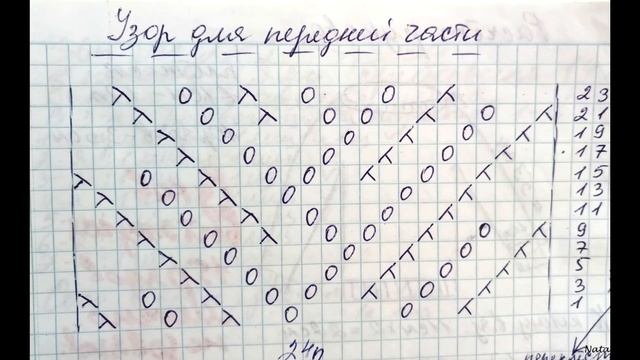 Узор для передней части
23
21
19
17
15
13
11
9
7
5
3
1
24п
Nata